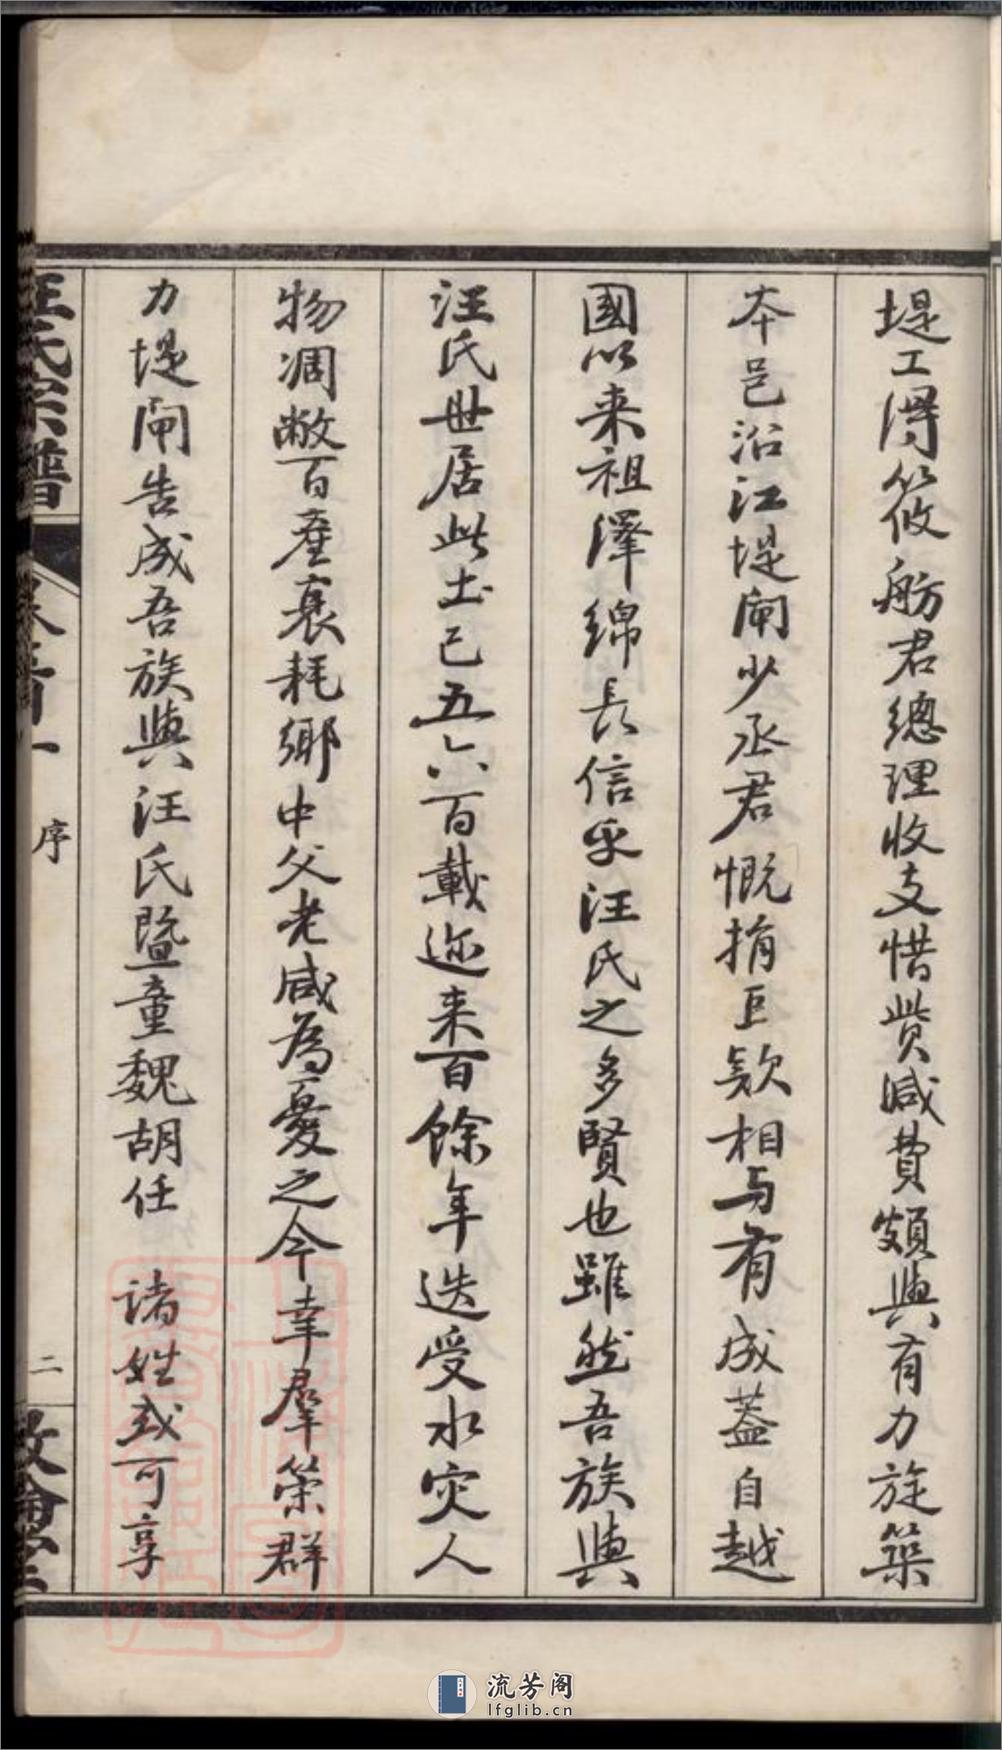 堤工得筱舫君總理收支惜貲減費頗與有力旋築
本邑沿江堤閘少丞君慨捐巨欵相与有成蓋自越
國以来祖澤綿長信乎汪氏之多賢也雖然吾族與
汪氏世居此土已五六百載迩来百餘年迭受水灾人
物凋敝百産衰耗鄉中父老咸為憂之今幸羣策群
力堤閘告成吾族與汪氏暨童魏胡任 諸姓或可享
汪氏宗譜 卷首一 序 二 敦倫堂
流芳阁
lfglib.cn